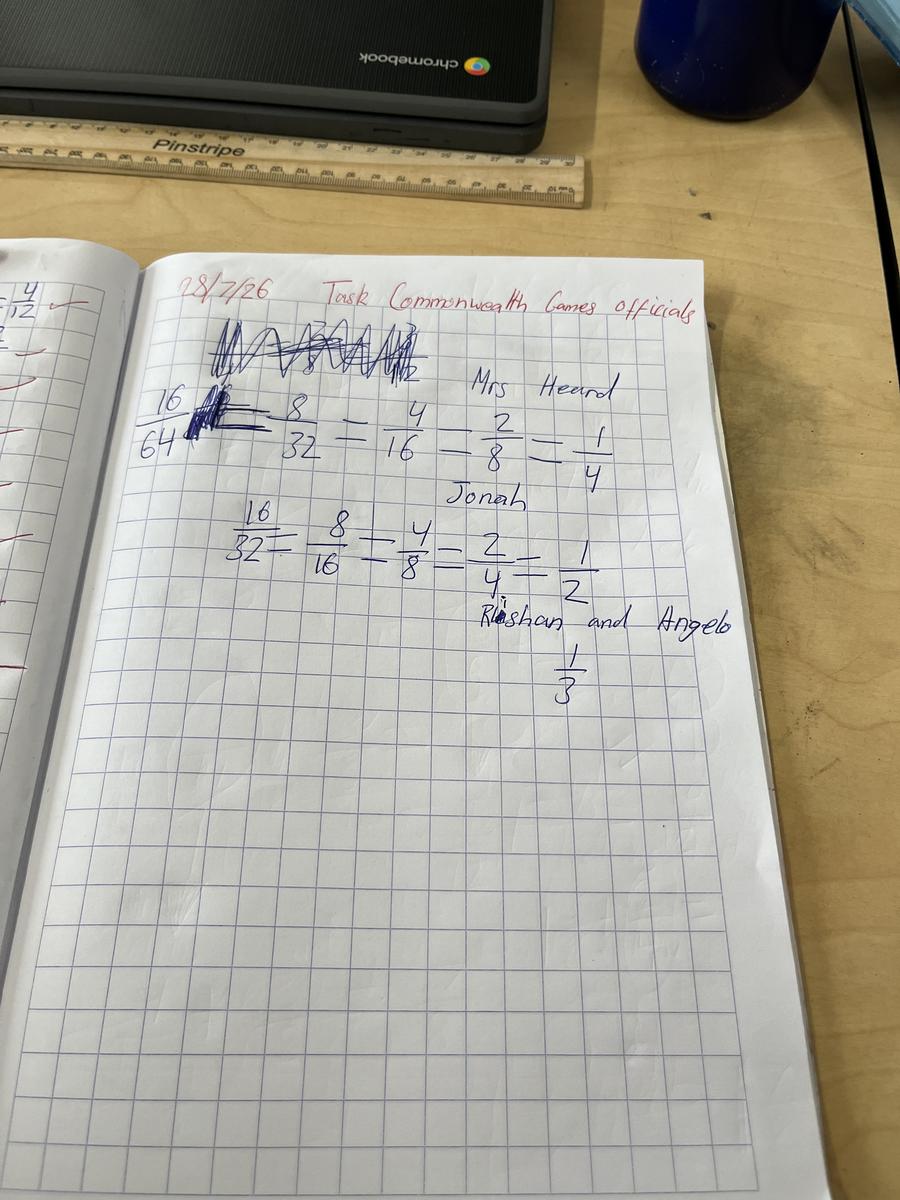 chromebook
Pinstripe
4/12
28/7/26 Task Commonwealth Games officials
Mrs Heard
16/64 = 8/32 = 4/16 = 2/8 = 1/4
Jonah
16/32 = 8/16 = 4/8 = 2/4 = 1/2
and Angelo
1/3